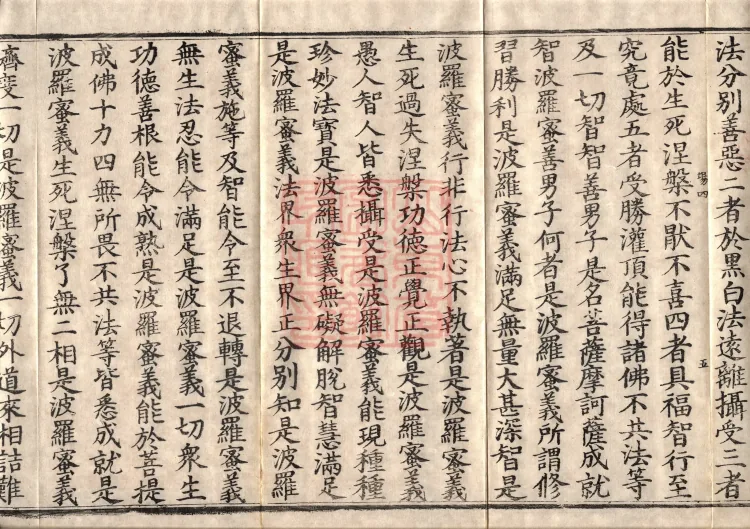 法分別善惡二者於黑白法遠離攝受三者
能於生死涅槃不厭不喜四者具福智行至
究竟處五者受勝灌頂能得諸佛不共法等
及一切智智善男子是名菩薩摩訶薩成就
智波羅蜜善男子何者是波羅蜜義所謂修
習勝利是波羅蜜義滿足無量大甚深智是
波羅蜜義行非行法心不執著是波羅蜜義
生死過失涅槃功德正覺正觀是波羅蜜義
愚人智人皆悉攝受是波羅蜜義能現種種
珍妙法寶是波羅蜜義無礙解脫智慧滿足
是波羅蜜義法界衆生界正分別知是波羅
蜜義施等及智能令至不退轉是波羅蜜義
無生法忍能令滿足是波羅蜜義一切衆生
功德善根能令成熟是波羅蜜義能於菩提
成佛十力四無所畏不共法等皆悉成就是
波羅蜜義生死涅槃了無二相是波羅蜜義
濟度一切是波羅蜜義一切外道來相詰難
五